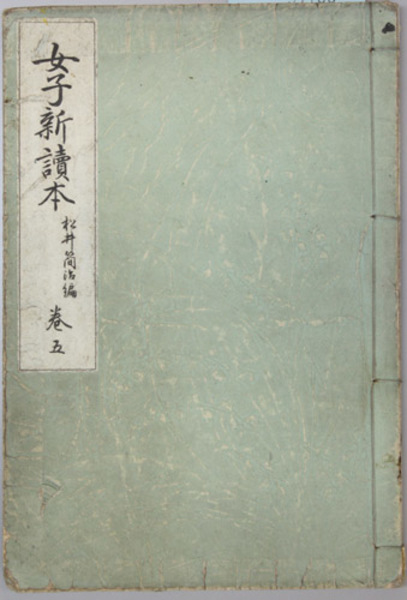 女子新讀本
松井簡治編
卷五